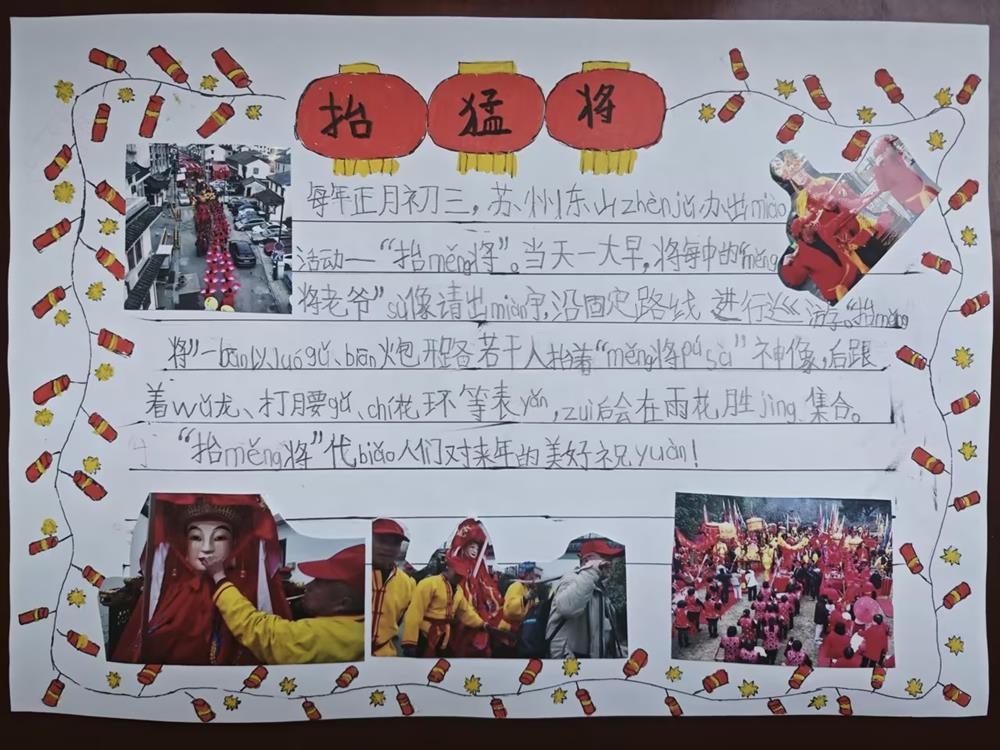 抬猛将
每年正月初三，苏州东山zhènjǔ办出miào
活动—“抬měng将”。当天一大早，将每中的“měng
将老爷”sù像请出miào宇，沿固定路线进行巡游。“抬měng
将”一bān以luógǔ、biān火包开路若干人抬着“měng将pú sà”神像，后跟
着wǔ龙、打腰gǔ、chí花环等表yǎn，zuì后会在雨花胜jǐng集合。
“抬měng将”代biǎo人们对来年的美好祝yuàn！